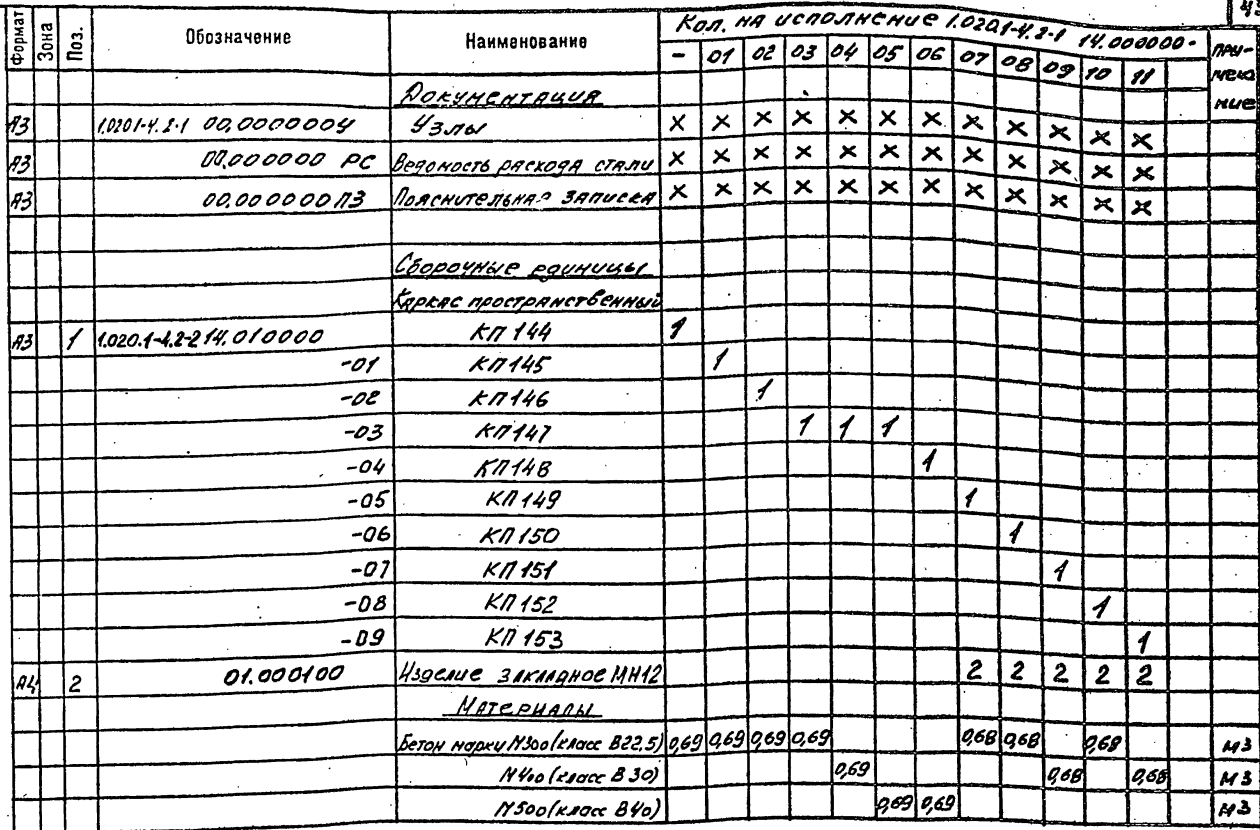 43
Формат Зона Поз. Обозначение Наименование Кол. на исполнение 1.020.1-4.2-1 14.000000- Примечание
- 01 02 03 04 05 06 07 08 09 10 11
Документация
А3 1.020.1-4.2-1 00.000000У Узлы × × × × × × × × × × × ×
А3 00.000000 РС Ведомость расхода стали × × × × × × × × × × × ×
А3 00.000000ПЗ Пояснительная записка × × × × × × × × × × × ×
Сборочные единицы
Каркас пространственный
А3 1 1.020.1-4.2-2 14.010000 КП 144 1
-01 КП145 1
-02 КП146 1
-03 КП147 1 1 1
-04 КП148 1
-05 КП149 1
-06 КП150 1
-07 КП151 1
-08 КП152 1
-09 КП153 1
А4 2 01.000100 Изделие закладное МН12 2 2 2 2 2
Материалы
Бетон марки М300(класс В22.5) 0,69 0,69 0,69 0,69 0,68 0,68 0,68 м3
М400(класс В30) 0,69 0,68 0,68 м3
М500(класс В40) 0,69 0,69 м3